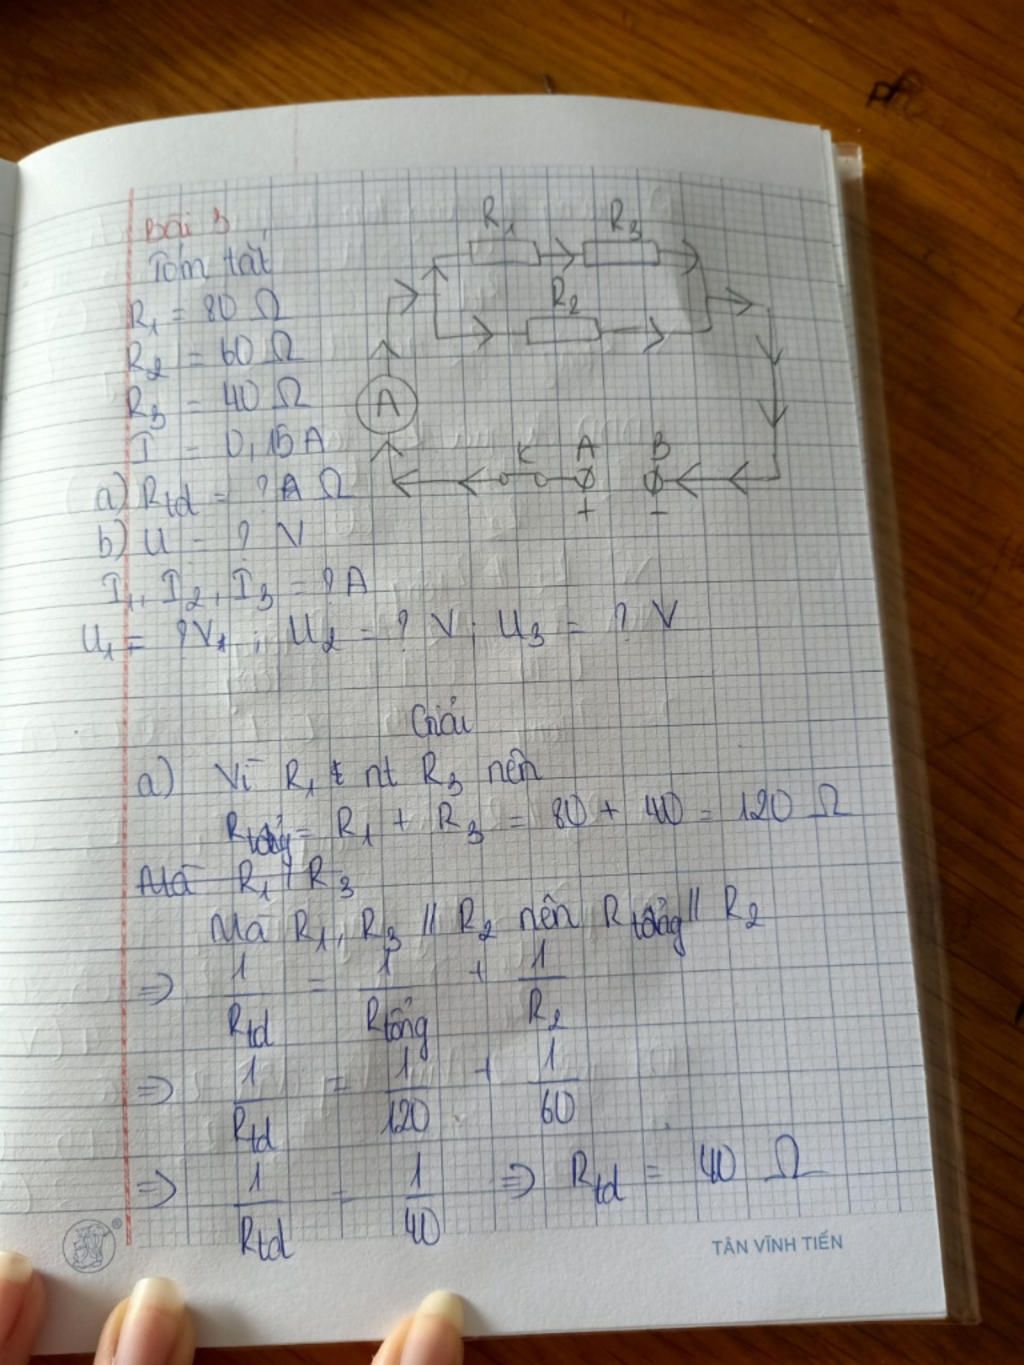 Bài 3
Tóm tắt
R₁ = 80 Ω
R₂ = 60 Ω
R₃ = 40 Ω
I = 0,15A
a) Rtđ = ? A Ω
b) U = ? V
I₁, I₂, I₃ = ? A
U₁ = ? V₁ ; U₂ = ? V ; U₃ = ? V
R₁ R₃
R₂
A
K A B
+ −
Giải
a) Vì R₁ t nt R₃ nên
Rtổng = R₁ + R₃ = 80 + 40 = 120 Ω
Mà R₁ // R₃
Mà R₁, R₃ // R₂ nên Rtổng // R₂
=> 1/Rtd = 1/Rtổng + 1/R₂
=> 1/Rtd = 1/120 + 1/60
=> 1/Rtd = 1/40 => Rtd = 40 Ω
TÂN VĨNH TIẾN